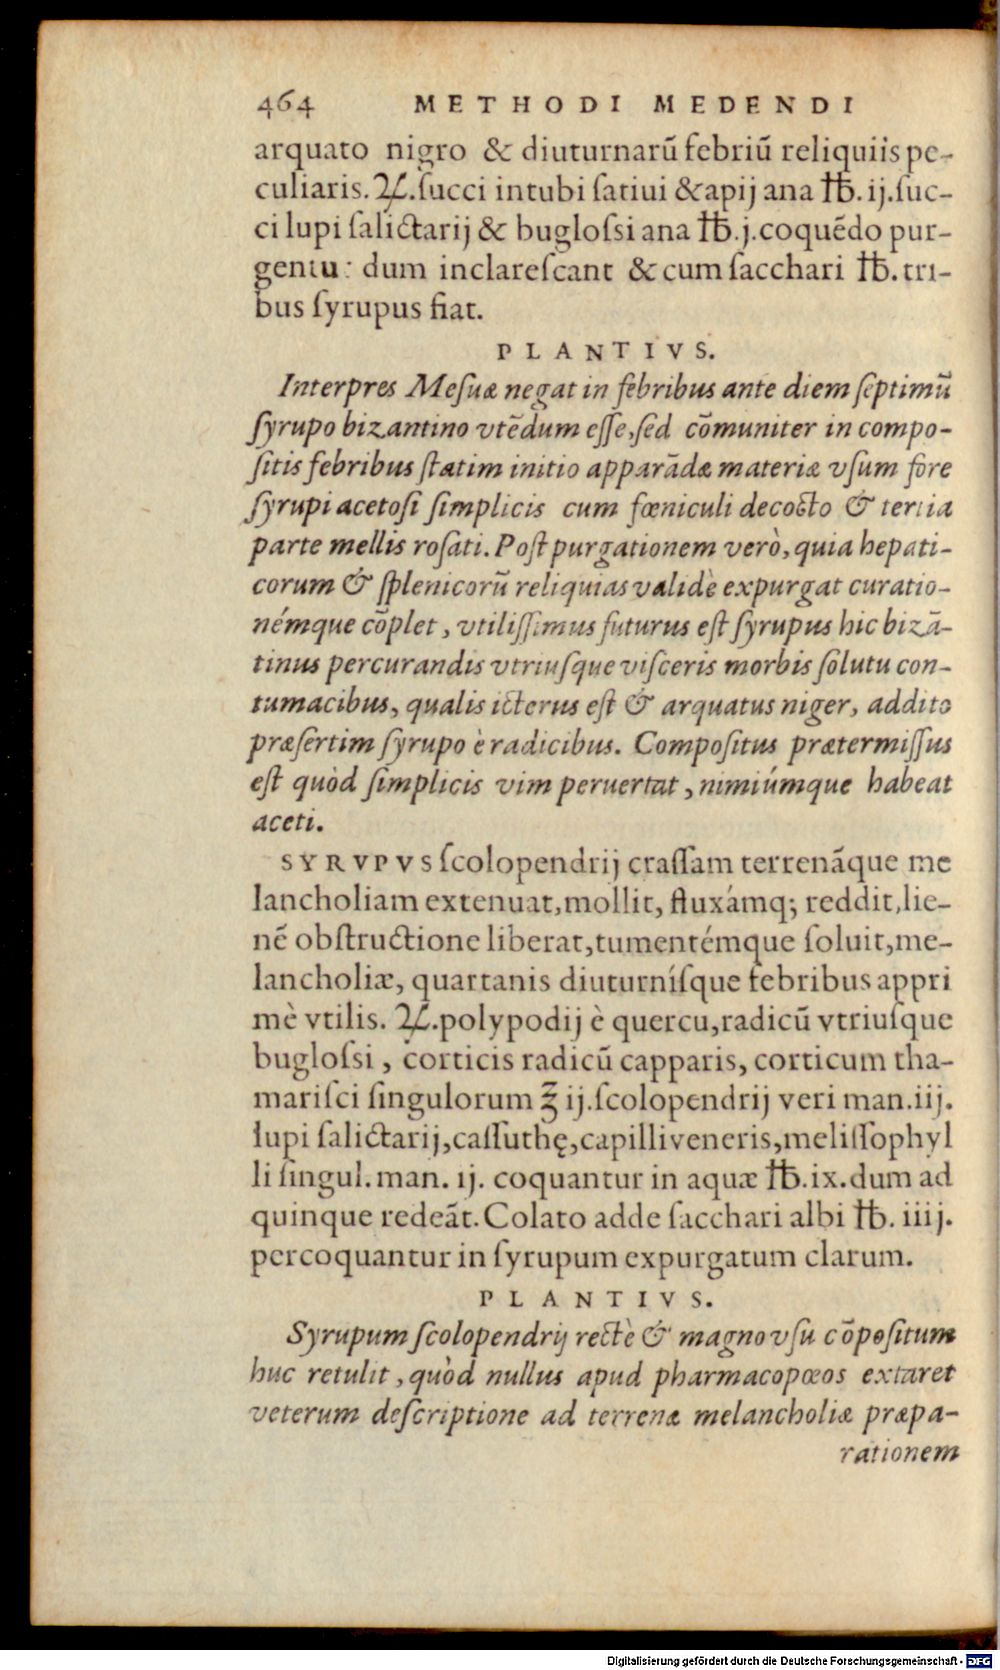 464 METHODI MEDENDI
arquato nigro & diuturnarũ febriũ reliquiis pe-
culiaris. ♃. ſucci intubi ſatiui & apij ana ℔. ij. ſuc-
ci lupi ſalictarij & bugloſsi ana ℔. j. coquẽdo pur-
gentur dum inclareſcant & cum ſacchari ℔. tri-
bus ſyrupus fiat.
PLANTIVS.
Interpres Meſuæ negat in febribus ante diem ſeptimũ
ſyrupo bizantino vtẽdum eſſe, ſed cõmuniter in compo-
ſitis febribus ſtatim initio apparãdæ materiæ vſum fore
ſyrupi acetoſi ſimplicis cum fœniculi decocto & tertia
parte mellis roſati. Poſt purgationem verò, quia hepati-
corum & ſplenicorũ reliquias validè expurgat curatio-
némque cõplet, vtiliſſimus futurus eſt ſyrupus hic bizã-
tinus percurandis vtriuſque viſceris morbis ſolutu con-
tumacibus, qualis icterus eſt & arquatus niger, addito
præſertim ſyrupo è radicibus. Compoſitus prætermiſſus
eſt quòd ſimplicis vim peruertat, nimiúmque habeat
aceti.
SYRVPVS ſcolopendrij craſſam terrenãque me
lancholiam extenuat, mollit, fluxámq; reddit, lie-
nẽ obſtructione liberat, tumentémque ſoluit, me-
lancholiæ, quartanis diuturníſque febribus appri
mè vtilis. ♃. polypodij è quercu, radicũ vtriuſque
bugloſsi, corticis radicũ capparis, corticum tha-
mariſci ſingulorum ℥ ij. ſcolopendrij veri man. iij.
lupi ſalictarij, caſſuthę, capilli veneris, meliſſophyl
li ſingul. man. ij. coquantur in aquæ ℔. ix. dum ad
quinque redeãt. Colato adde ſacchari albi ℔. iiij.
percoquantur in ſyrupum expurgatum clarum.
PLANTIVS.
Syrupum ſcolopendrij rectè & magno vſu cõpoſitum
huc retulit, quòd nullus apud pharmacopœos extaret
veterum deſcriptione ad terrenæ melancholiæ præpa-
rationem
Digitalisierung gefördert durch die Deutsche Forschungsgemeinschaft - DFG